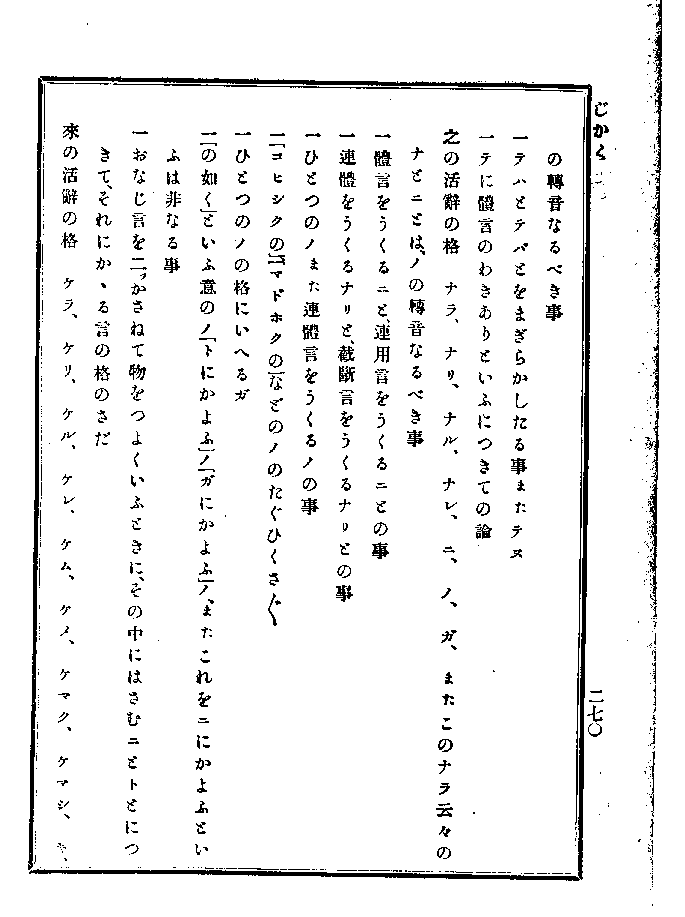 じかく
二七〇
の轉音なるべき事
一テハとテバとをまぎらかしたる事またテヌ
一テに體言のわきありといふにつきての論
之の活辭の格　ナラ、ナリ、ナル、ナレ、ニ、ノ、ガ、またこのナラ云々の
ナとニとは、ノの轉音なるべき事
一體言をうくるニと、連用言をうくるニとの事
一連體をうくるナリと、截斷言をうくるナリとの事
一ひとつのノまた連體言をうくるノの事
一「コヒシクの」「マドホクの」などのノのたぐひくさ〴〵
一ひとつのノの格にいへるガ
一「の如く」といふ意のノ「トにかよふ」ノ「ガにかよふ」ノ、またこれをニにかよふとい
ふは非なる事
一おなじ言を二ッかさねて物をつよくいふときに、その中にはさむニとトとにつ
きて、それにかゝる言の格のさだ
來の活辭の格　ケラ、ケリ、ケル、ケレ、ケム、ケメ、ケマク、ケマシ、キ、